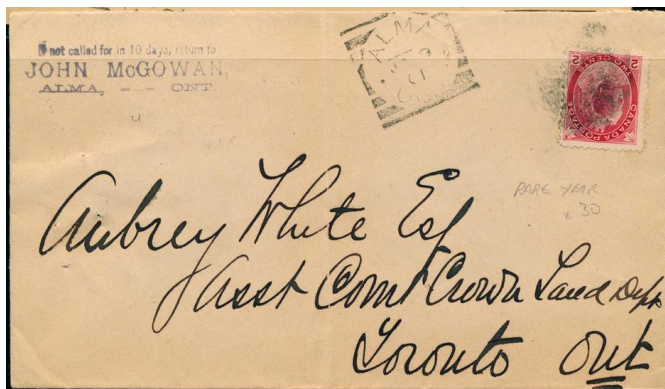 If not called for in 10 days, return to
JOHN McGOWAN,
ALMA, - - ONT.
ALMA
01
2 TWO CENTS 2
CANADA POSTAGE
RARE YEAR
30
Aubrey White Esq
Asst Comt Crown Land Dept
Toronto Ont